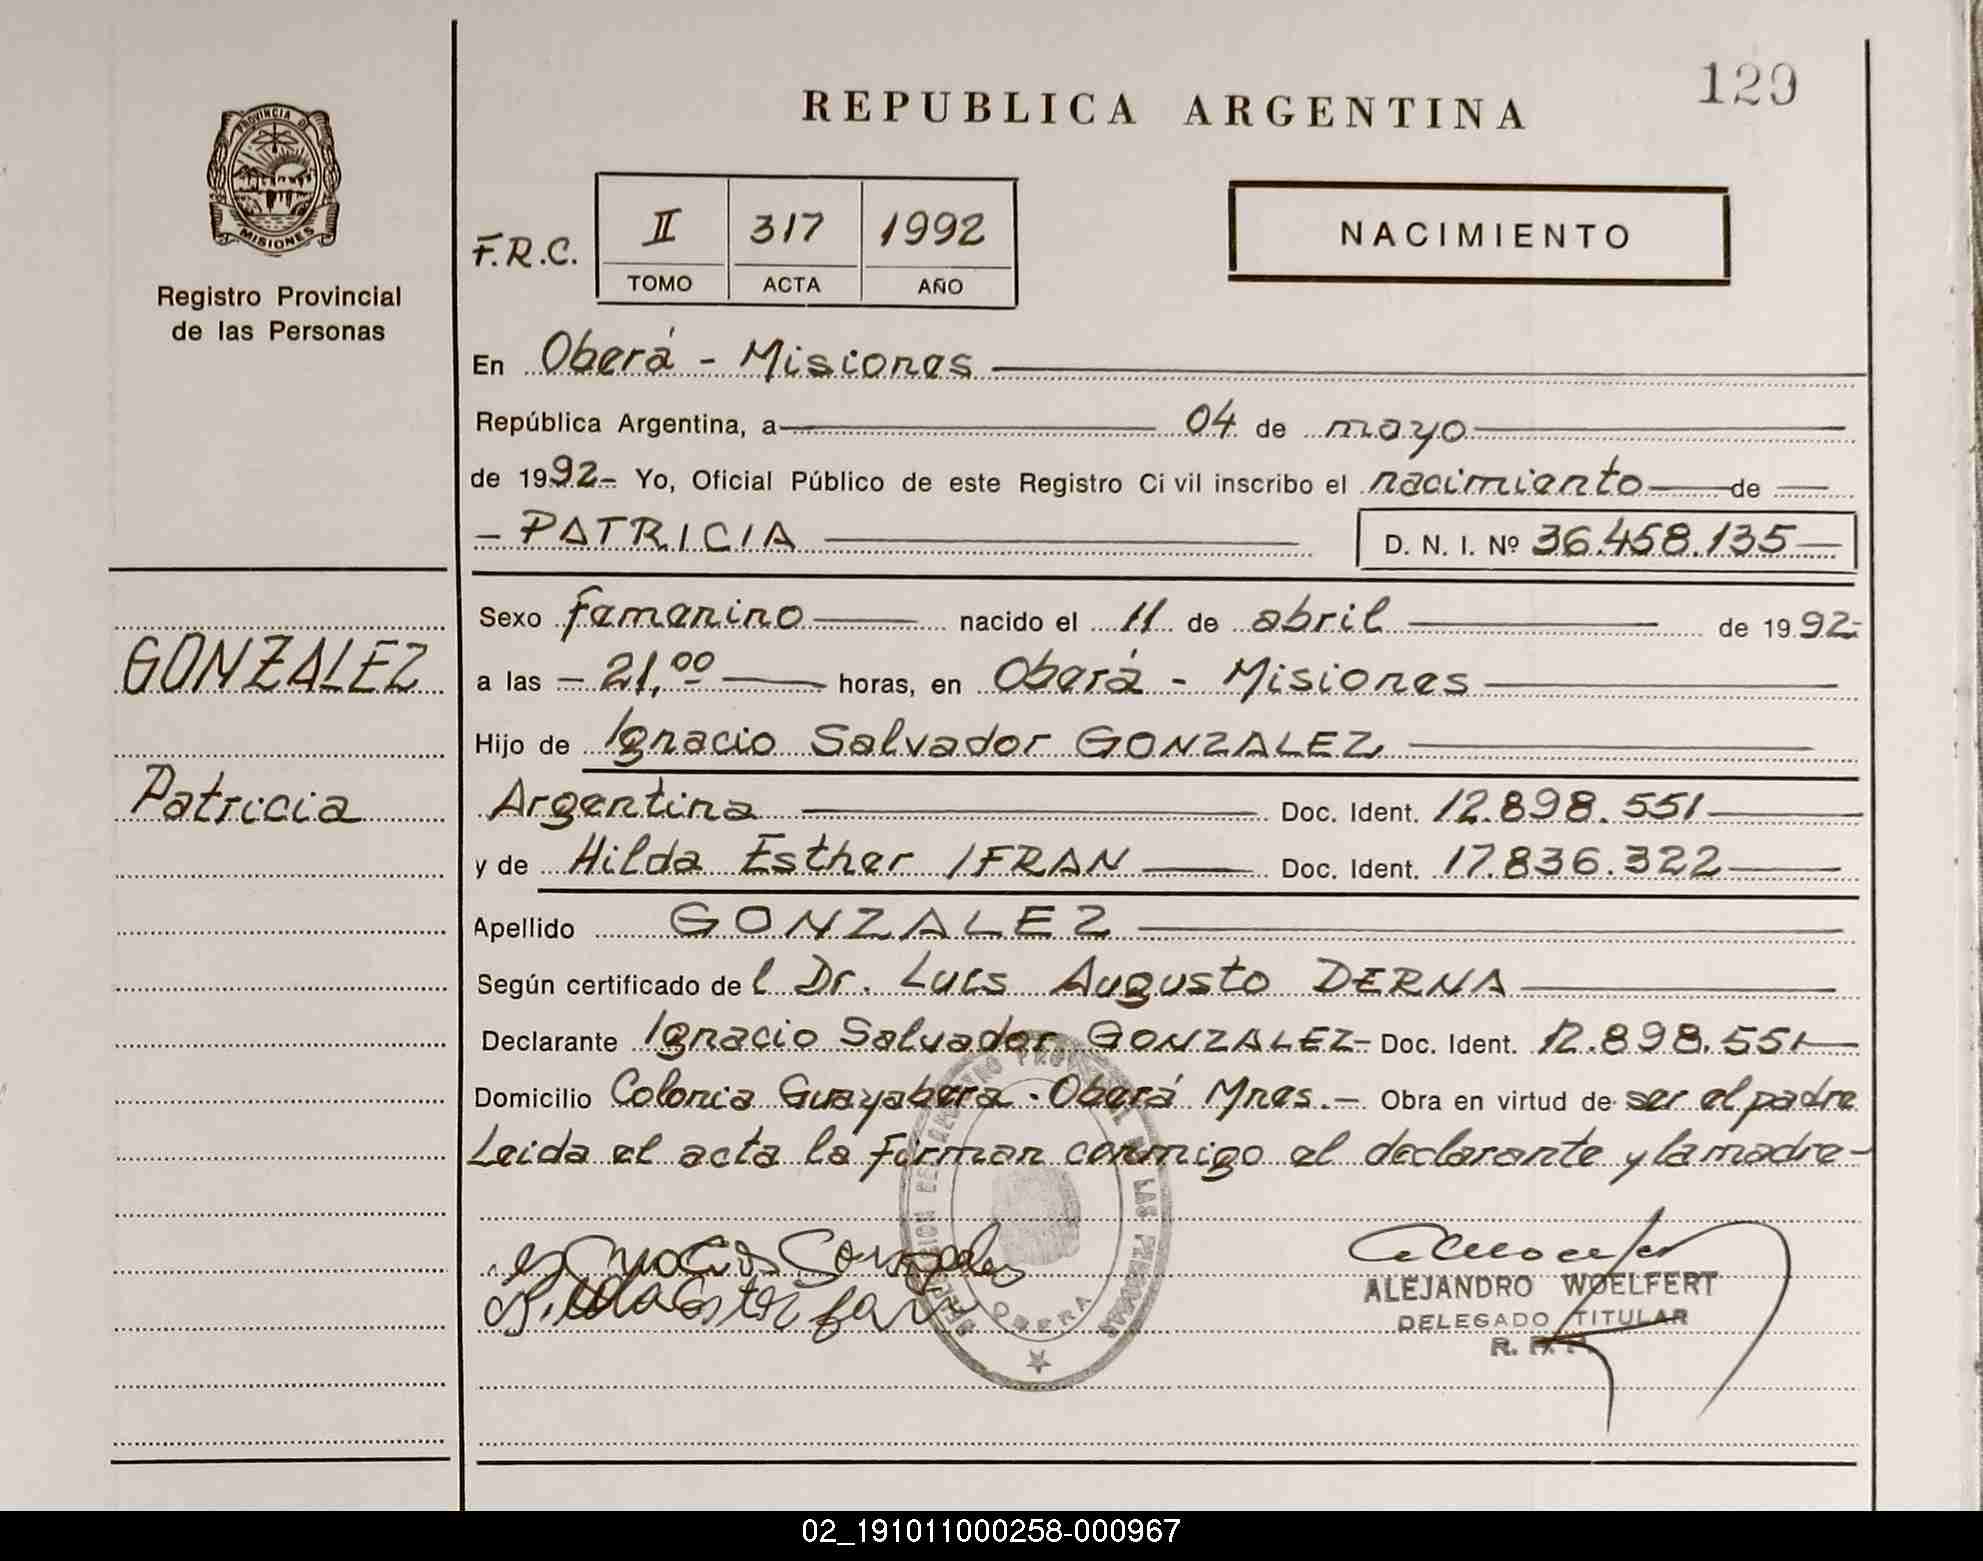 129
REPUBLICA ARGENTINA
PROVINCIA DE
MISIONES
Registro Provincial
de las Personas
F.R.C.
II 317 1992
TOMO ACTA AÑO
NACIMIENTO
En Oberá - Misiones
República Argentina, a 04 de mayo
de 1992- Yo, Oficial Público de este Registro Civil inscribo el nacimiento de
- PATRICIA D. N. I. Nº 36.458.135
GONZALEZ
Patricia
Sexo femenino nacido el 11 de abril de 1992-
a las - 21,00 horas, en Oberá - Misiones
Hijo de Ignacio Salvador GONZALEZ
Argentina Doc. Ident. 12.898.551
y de Hilda Esther IFRAN Doc. Ident. 17.836.322
Apellido GONZALEZ
Según certificado del Dr. Luis Augusto DERNA
Declarante Ignacio Salvador GONZALEZ- Doc. Ident. 12.898.551
Domicilio Colonia Guayabera. Oberá Mnes.- Obra en virtud de ser el padre
Leida el acta la firman conmigo el declarante y la madre-
OBERA
ALEJANDRO WOELFERT
DELEGADO TITULAR
02_191011000258-000967